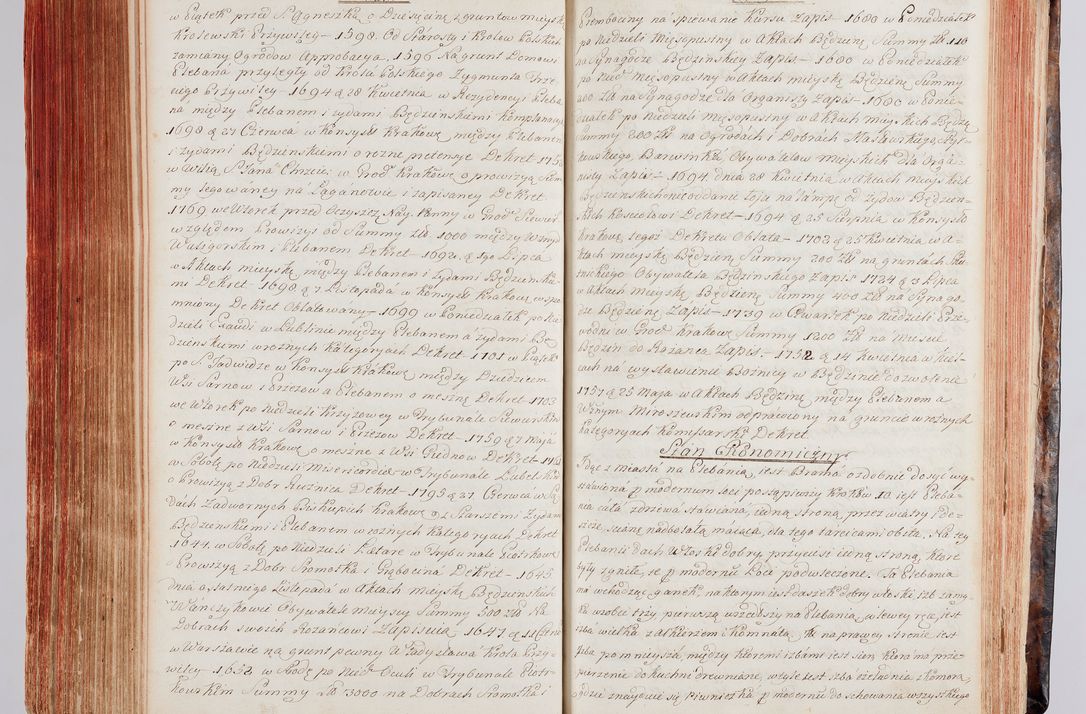 w Piątek przed S. Agneszką o Dziesięcinę z gruntow mieysk:
Krolewski Przywiley – 1598. Od Starosty i Krolow Polskich
zamiany Ogrodow Approbacya. 1596 Na grunt Domowi
Plebana przyległy od Krola Polskiego Zygmunta Trze-
ciego Przywiley – 1694 d 28 Kwietnia w Rezydencyi Pleba
na między Plebanem i żydami Będzinskiemi Komplanacya
1698 d 27 Czerwca w Konsysto Krakow: między Plebanem
i żydami Będzinskiemi o rozne pretensye Dekret – 175
w Wilią S. Jana Chrzcic: w Grod: Krakow: o prowizyą Sum
my legowaney na Zaganowie i zapisaney Dekret
1769 we Wtorek przed Oczyszcz: Nay: Panny w Grod: Siewier
względem Prowizyi od Summy złp: 1000 między Wznym
Waligorskim i Plebanem Dekret – 1692. d. 19o Lipca
w Aktach mieysk: między Plebanem i Żydami Będzinski
mi Dekret – 1698 d 7 Listopada w Konsysto Krakow: wspo-
mniony Dekret Oblatowany – 1699 w Poniedziałek po Nie
dzieli Exaudi w Lublinie między Plebanem a żydami Bę
dzinskiemi w roznych Kategoryach Dekret – 1701 w Piątek
po S. Jadwidze w Konsysto Krakow: między Dziedzicem
Wsi Sarnow i Przezow a Plebanem o mesznę Dekret 1703
we Wtorek po Niedzieli Krzyzowey w Trybunale Siewierskim
o meszne z Wsi Sarnow i Przezow Dekret – 1759 d 7 Maja
w Konsysto Krakow: o meszne z Wsi Grodnow Dekret – 176
w Sobotę po Niedzieli Misericordiæ w Trybunale Lubelskim
o Prowizyą z Dobr Ruznica Dekret – 1795 d 27 Czerwca w Są
dach Zadwornych Biskupich Krakow: ze Starszemi Żydami
Będzinskiemi i Plebanem w roznych Kategoryach Dekret
1644. w Sobotę po Niedzieli Lætare w Trybunale Piotrkow:
o Prowizyą z Dobr Siemotka i Grąbocina Dekret – 1645
dnia osiemnastego Listopada w Aktach mieysk: Będzinskich
Wanczykowie Obywatele mieyscy Summy 500 złp Na
Dobrach swoich Rozancowi Zapiścia 1647 d 11 Czer
w Warszawie na grunt pewny Władysława Krola Przy-
wiley – 1658 w Srodę po Nied: Oculi w Trybunale Piotr-
kowskim Summy złp 3000 na Dobrach Siemotka i
Piembociny na spiewanie Kursu Zapis – 1680 w Poniedziałek
po Niedzieli Mięsopustny w Aktach Będzin: Summy złp 110
na Synagodze Będzinskiey Zapis – 1680 w Poniedziałek
po Nied: Mięsopustny w Aktach mieysk: Będzin: Summy
200 złp na Synagodze dla Organisty Zapis – 1680 w Ponie-
działek po Niedzieli Mięsopustny w Aktach mieyskich Będzin:
Summy 200 złp na Ogrodach i Dobrach
Barwinka, Obywatelow mieyskich dla Orga-
nisty Zapis – 1694 dnia 28 Kwietnia w Aktach mieyskich
Będzinskich o nieoddanie łoju na lampę od żydow Będzin-
skich Kosciołowi Dekret – 1694 d. 25 Sierpnia w Konsysto
Krakow: tegoż Dekretu Oblata – 1703 d 25 Kwietnia w A-
ktach mieysk: Będzin: Summy 200 złp na gruntach Ku
tnickiego Obywatela Będzinskiego Zapis 1724 d 3 Lipca
w Aktach mieysk: Będzin: Summy 400 złp na Synago-
dze Będzin: Zapis – 1739 w Czwartek po Niedzieli Prze-
wodni w Grod: Krakow: Summy 1200 złp na
Będzin do Rozanca Zapis – 1732 d 14 Kwietnia w Kiel-
cach na wystawienie Bożnicy w Będzinie dozwolenie
1757 d 25 Maja w Aktach Będzin: między Plebanem a
Wznym Mieroszewskim odprawiony na gruncie w roznych
Kategoryach Kommissarski Dekret
Stan Ekonomiczny
Idąc z miasta na Plebanią iest Brama ozdobnie dosyć wy-
stawiona p modernum
na cała z drzewa stawiana, iedną stroną, przez własny
szcze, scianę nadbotałą maiąca, dla tego tarcicami obita. Na tey
Plebanii dach Włoski dobry, przyciesi iedną stroną, ktore
były zgniłe, są p modernu Loci podwleczone. Ta Plebania
ma wchodząc ganek na ktorym iest daszek dobry włoski izb zamy-
ka w sobie trzy pierwszą wszedłszy na Plebanią, w lewey ręce, iest
izba wielka z alkierzem i Komnatą, na prawey stronie iest
izba po mnieysza, między ktoremi izbami iest sień, Ktora ma prze-
pierzenie do kuchni drewniane, w tyle iest izba czeladnia z komorą,
gdzie znayduie się piwniczka p modernu do schowania wszystkiego